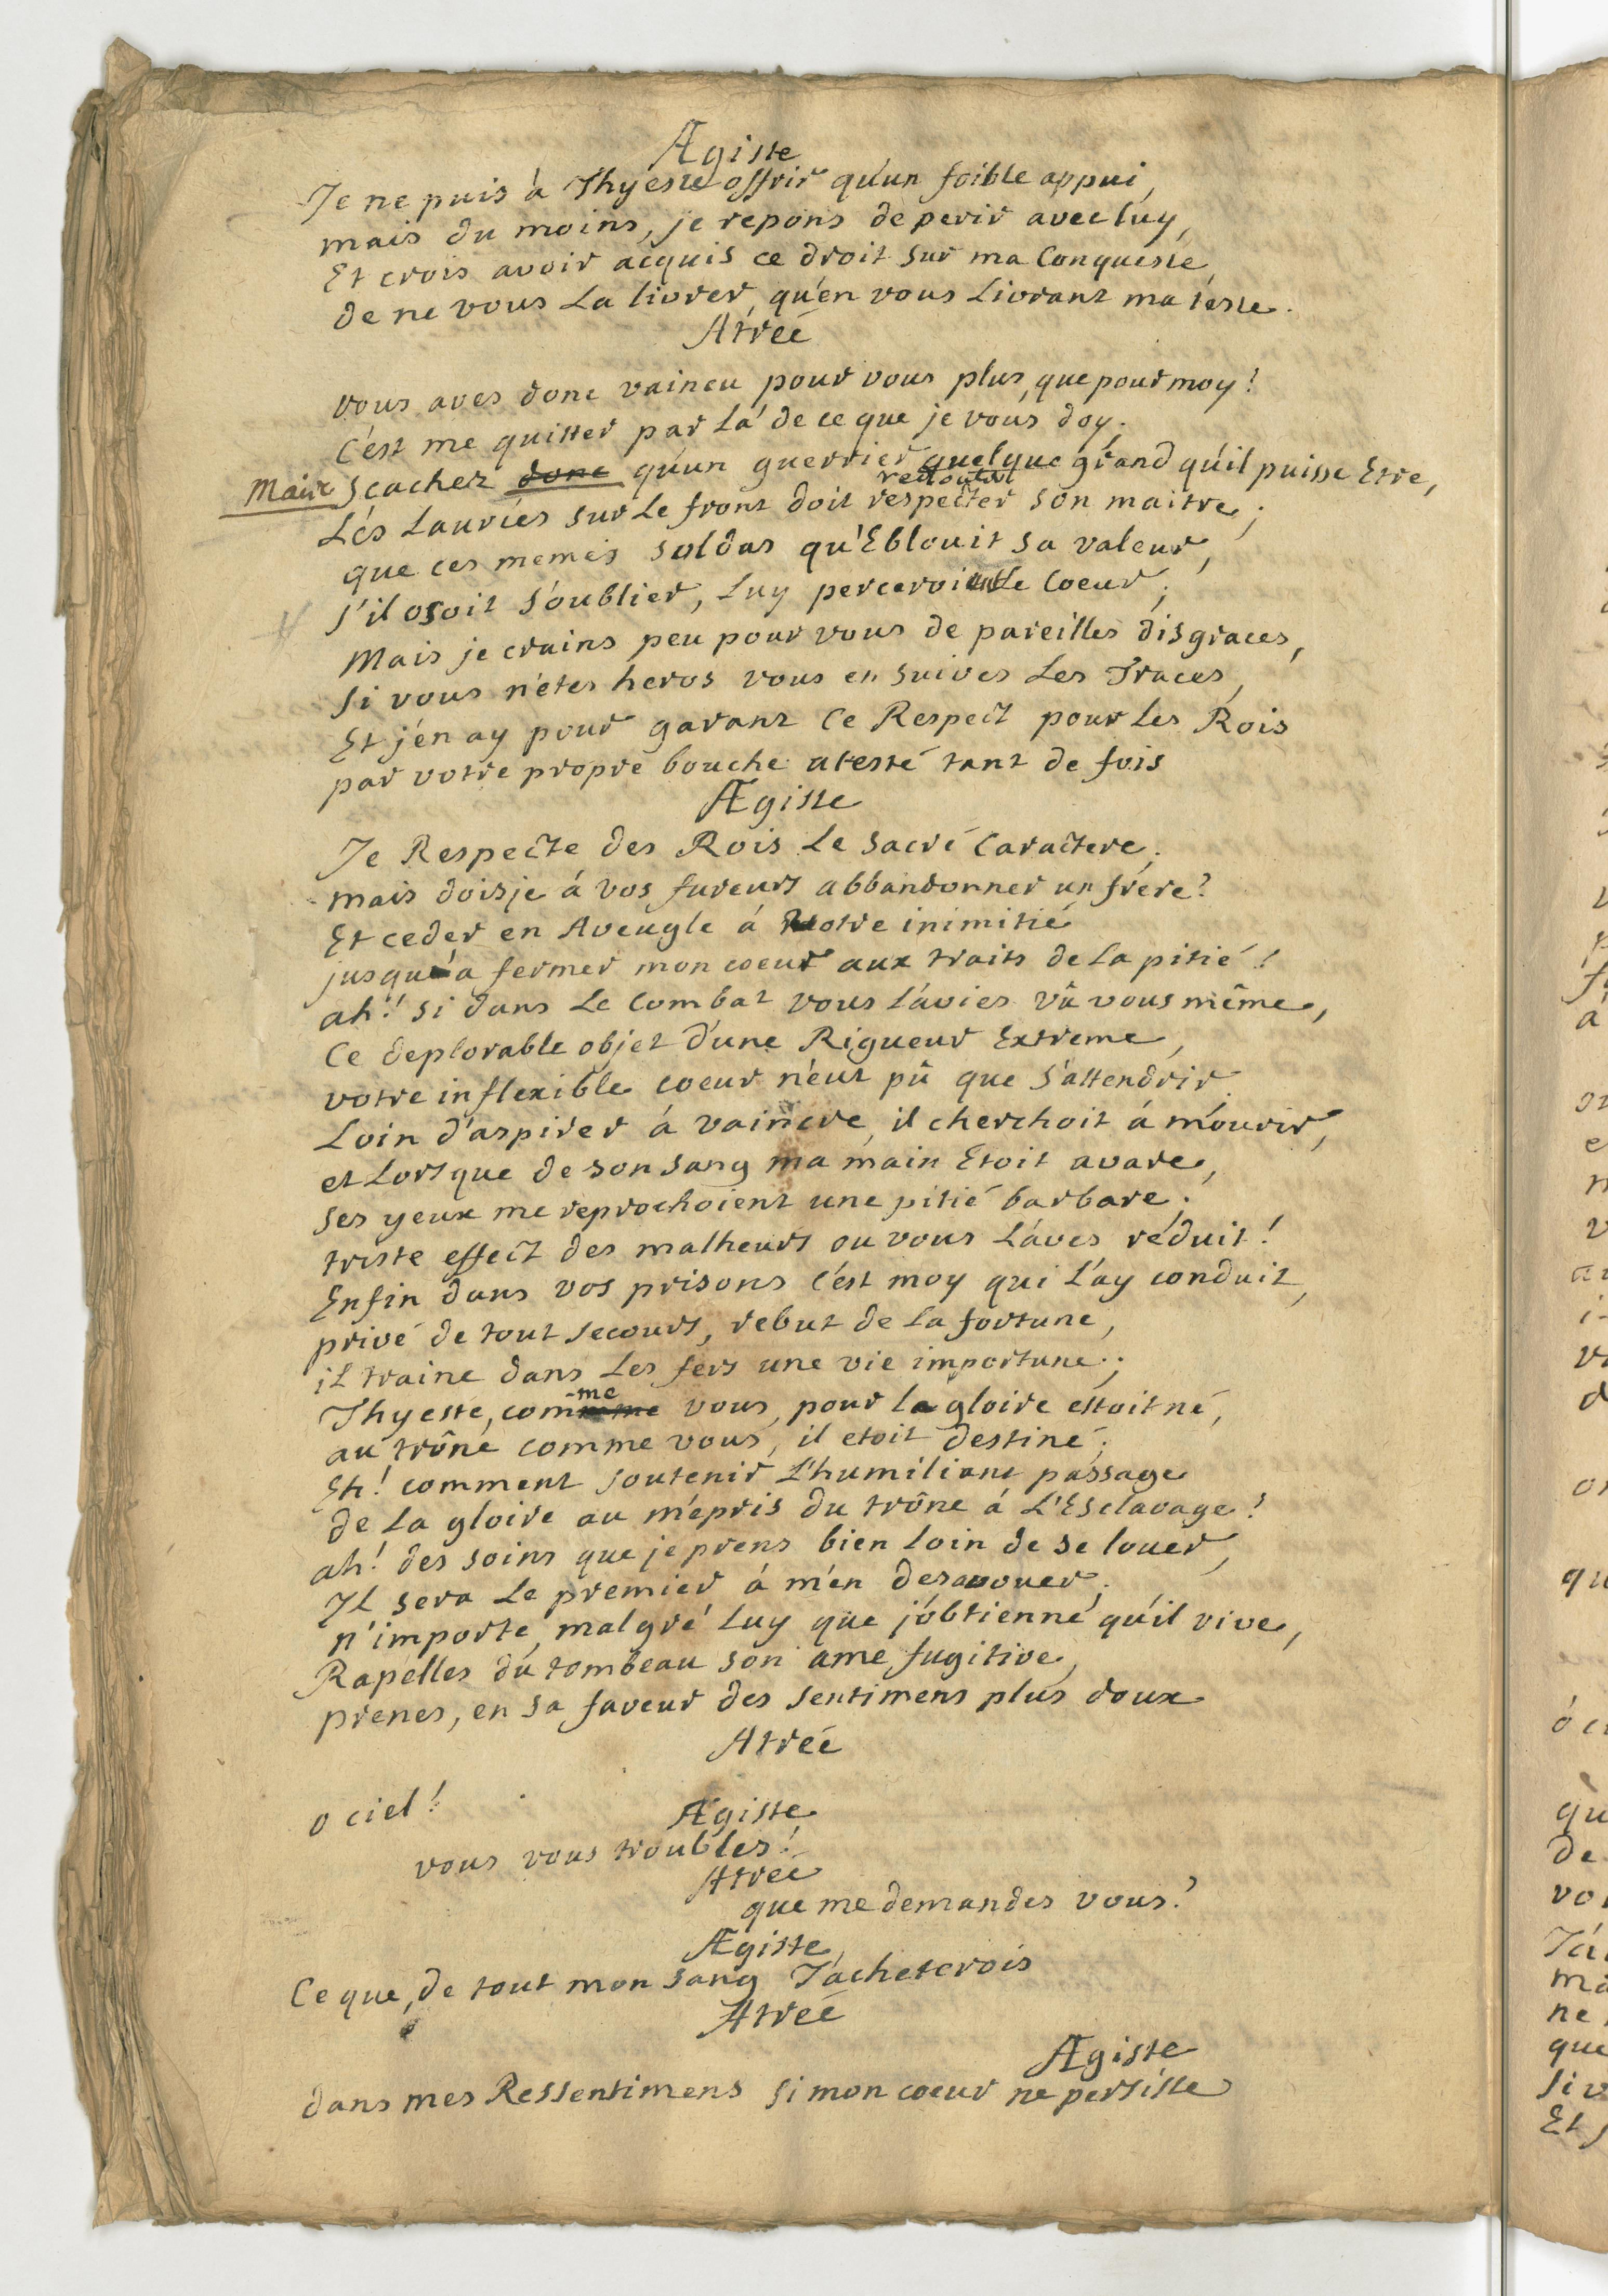 Ægiste
Je ne puis à Thyeste offrir qu'un foible appui,
mais du moins, je repons de perir avec luy,
Et crois avoir acquis ce droit sur ma Conqueste,
de ne vous La livrer, qu'en vous Livrant ma teste.
Atreé
vous aves donc vaincu pour vous plus que pour moy!
C'est me quitter par Là de ce que je vous doy.
Mais Scachez donc qu'un guerrier quelque grand qu'il puisse Etre,
redouter
Lés Lauriés sur Le front doit respecter son maitre;
que ces memes soldas qu'Eblouit sa valeur,
s'il osoit s'oublier, Luy perceroient Le Coeur;
Mais je crains peu pour vous de pareilles disgraces,
si vous n'etes heros vous en suives Les Traces,
Et j'en ay pour garant Ce Respect pour Les Rois
par votre propre bouche atesté tant de fois
Ægiste
Je Respecte des Rois Le sacré Caractere;
mais doisje á vos fureurs abbandonner un frere?
Et ceder en Aveugle á votre inimitié
jusqu'a fermer mon coeur aux traits de La pitié!
ah! si dans Le Combat vous L'avies vû vous même,
Ce deplorable objet d'une Rigueur Extreme,
votre inflexible coeur n'eut pû que s'attendrir
Loin d'aspirer á vaincre, il cherchoit á mourir,
et Lorsque de son sang ma main Etoit avare,
ses yeux me reprochoient une pitié barbare;
triste effect des malheurs ou vous L'aves réduit!
Enfin dans vos prisons C'est moy qui L'ay conduit,
privé de tout secours, rebut de La fortune,
iL traine dans Les fers une vie importune;
-me
Thyeste, comme vous, pour la gloire estoit né,
au trône comme vous, il etoit destiné;
Eh! comment soutenir L'humiliant passage
de La gloire au mépris du trône á L'Esclavage!
ah! des soins que je prens bien Loin de se louer,
IL sera Le premier á m'en desavouer;
n'importe, malgré Luy que j'obtienne qu'il vive,
Rapelles du tombeau son ame fugitive,
prenes, en sa faveur des sentimens plus doux
Atreé
o ciel!
Ægiste
vous vous troubles!
Atreé
que me demandes vous?
Ægiste
Ce que, de tout mon sang J'acheterois
Atreé
Ægiste
dans mes Ressentimens si mon coeur ne persiste